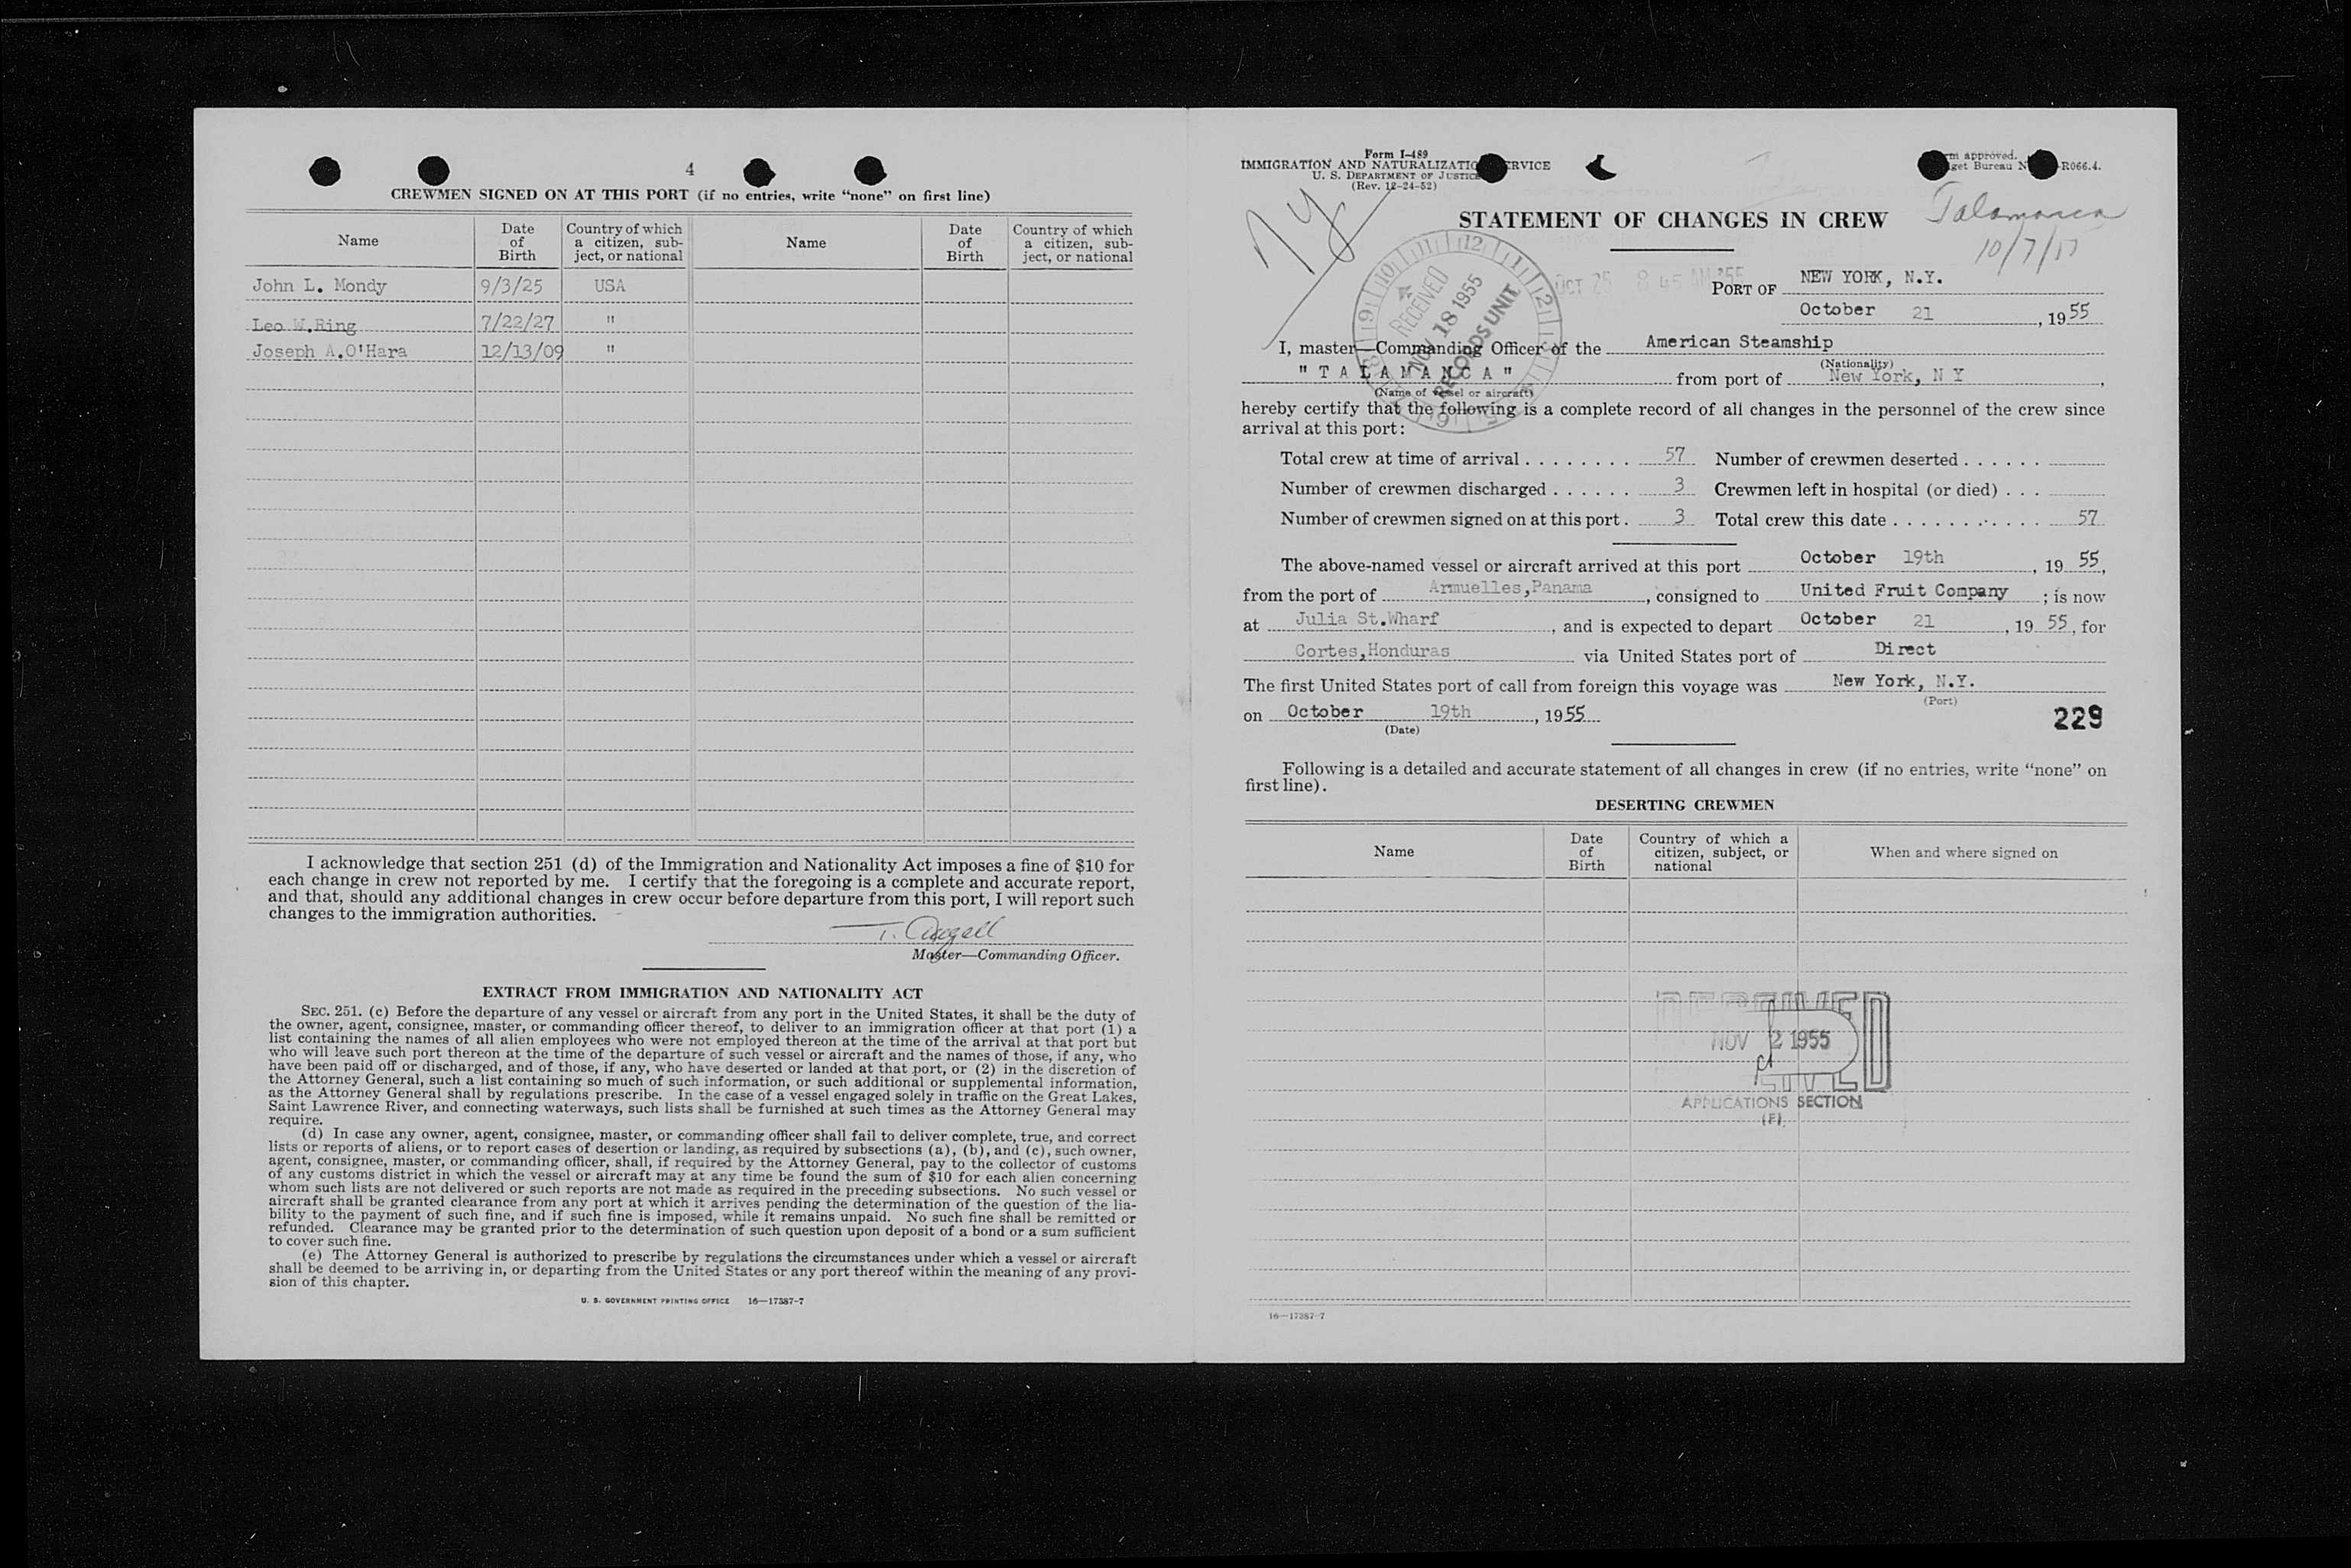 4
CREWMEN SIGNED ON AT THIS PORT (if no entries, write “none” on first line)
Name
Date of Birth
Country of which a citizen, subject, or national
Name
Date of Birth
Country of which a citizen, subject, or national
John L. Mondy 9/3/25 USA
Leo W.Ring 7/22/27 "
Joseph A.O'Hara 12/13/09 "
I acknowledge that section 251 (d) of the Immigration and Nationality Act imposes a fine of $10 for
each change in crew not reported by me. I certify that the foregoing is a complete and accurate report,
and that, should any additional changes in crew occur before departure from this port, I will report such
changes to the immigration authorities.
Master—Commanding Officer.
EXTRACT FROM IMMIGRATION AND NATIONALITY ACT
SEC. 251. (c) Before the departure of any vessel or aircraft from any port in the United States, it shall be the duty of
the owner, agent, consignee, master, or commanding officer thereof, to deliver to an immigration officer at that port (1) a
list containing the names of all alien employees who were not employed thereon at the time of the arrival at that port but
who will leave such port thereon at the time of the departure of such vessel or aircraft and the names of those, if any, who
have been paid off or discharged, and of those, if any, who have deserted or landed at that port, or (2) in the discretion of
the Attorney General, such a list containing so much of such information, or such additional or supplemental information,
as the Attorney General shall by regulations prescribe. In the case of a vessel engaged solely in traffic on the Great Lakes,
Saint Lawrence River, and connecting waterways, such lists shall be furnished at such times as the Attorney General may
require.
(d) In case any owner, agent, consignee, master, or commanding officer shall fail to deliver complete, true, and correct
lists or reports of aliens, or to report cases of desertion or landing, as required by subsections (a), (b), and (c), such owner,
agent, consignee, master, or commanding officer, shall, if required by the Attorney General, pay to the collector of customs
of any customs district in which the vessel or aircraft may at any time be found the sum of $10 for each alien concerning
whom such lists are not delivered or such reports are not made as required in the preceding subsections. No such vessel or
aircraft shall be granted clearance from any port at which it arrives pending the determination of the question of the lia-
bility to the payment of such fine, and if such fine is imposed, while it remains unpaid. No such fine shall be remitted or
refunded. Clearance may be granted prior to the determination of such question upon deposit of a bond or a sum sufficient
to cover such fine.
(e) The Attorney General is authorized to prescribe by regulations the circumstances under which a vessel or aircraft
shall be deemed to be arriving in, or departing from the United States or any port thereof within the meaning of any provi-
sion of this chapter.
U. S. GOVERNMENT PRINTING OFFICE 16—17387-7
Form I-489
IMMIGRATION AND NATURALIZATIO RVICE
U. S. DEPARTMENT OF JUSTICE
(Rev. 12-24-52)
m approved.
get Bureau N R066.4.
NY
STATEMENT OF CHANGES IN CREW
Talamanca
OCT 25 8 45 AM '55
RECEIVED
NOV 18 1955
RECORDS UNIT
PORT OF NEW YORK, N.Y.
October 21, 1955
I, master—Commanding Officer of the American Steamship
(Nationality)
" T A L A M A N C A " from port of New York, N Y,
(Name of vessel or aircraft)
hereby certify that the following is a complete record of all changes in the personnel of the crew since
arrival at this port:
Total crew at time of arrival . . . . . . . . 57 Number of crewmen deserted . . . . . .
Number of crewmen discharged . . . . . . 3 Crewmen left in hospital (or died) . . .
Number of crewmen signed on at this port . 3 Total crew this date . . . . . . . . . . . 57
The above-named vessel or aircraft arrived at this port October 19th, 19 55,
from the port of Armuelles,Panama, consigned to United Fruit Company; is now
at Julia St.Wharf, and is expected to depart October 21, 19 55, for
Cortes,Honduras via United States port of Direct
The first United States port of call from foreign this voyage was New York, N.Y.
(Port)
on October 19th, 1955
(Date)
229
Following is a detailed and accurate statement of all changes in crew (if no entries, write “none” on
first line).
DESERTING CREWMEN
Name
Date of Birth
Country of which a citizen, subject, or national
When and where signed on
RECEIVED
NOV 2 1955
APPLICATIONS SECTION
(F)
16—17387-7